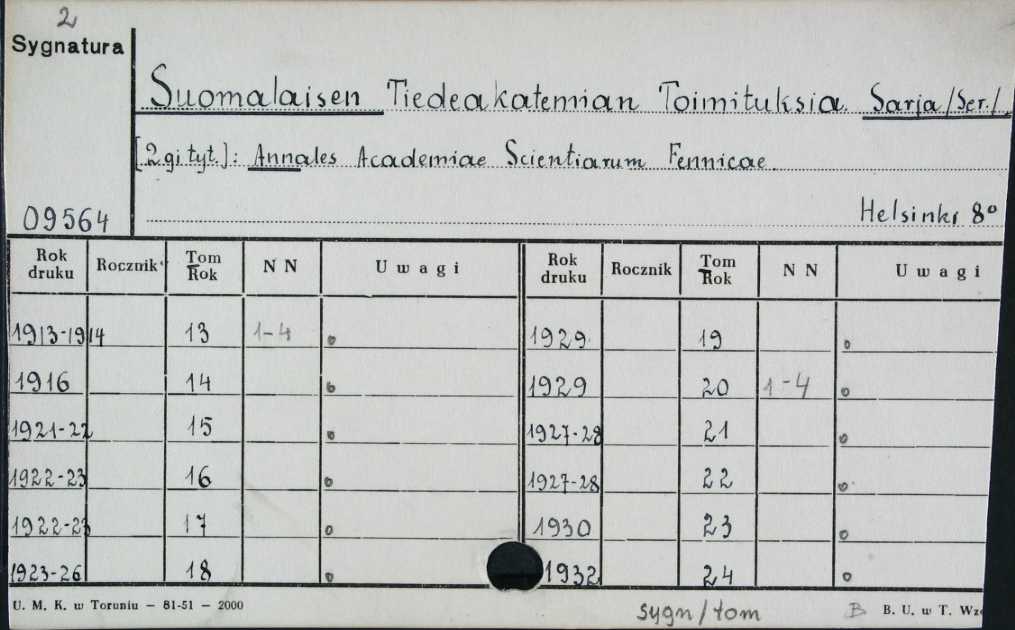 2
Sygnatura
Suomalaisen Tiedeakatemian Toimituksia. Sarja/Ser./
[2gi tyt.]: Annales Academiae Scientiarum Fennicae.
09564 Helsinki 8º
Rok druku Rocznik Tom Rok N N Uwagi Rok druku Rocznik Tom Rok N N Uwagi
1913-1914 13 1-4 o 1929 19 o
1916 14 o 1929 20 1-4 o
1921-22 15 o 1927-28 21 o
1922-23 16 o 1927-28 22 o
1922-23 17 o 1930 23 o
1923-26 18 o 1932 24 o
U. M. K. w Toruniu – 81-51 – 2000 sygn/tom B B. U. w T.